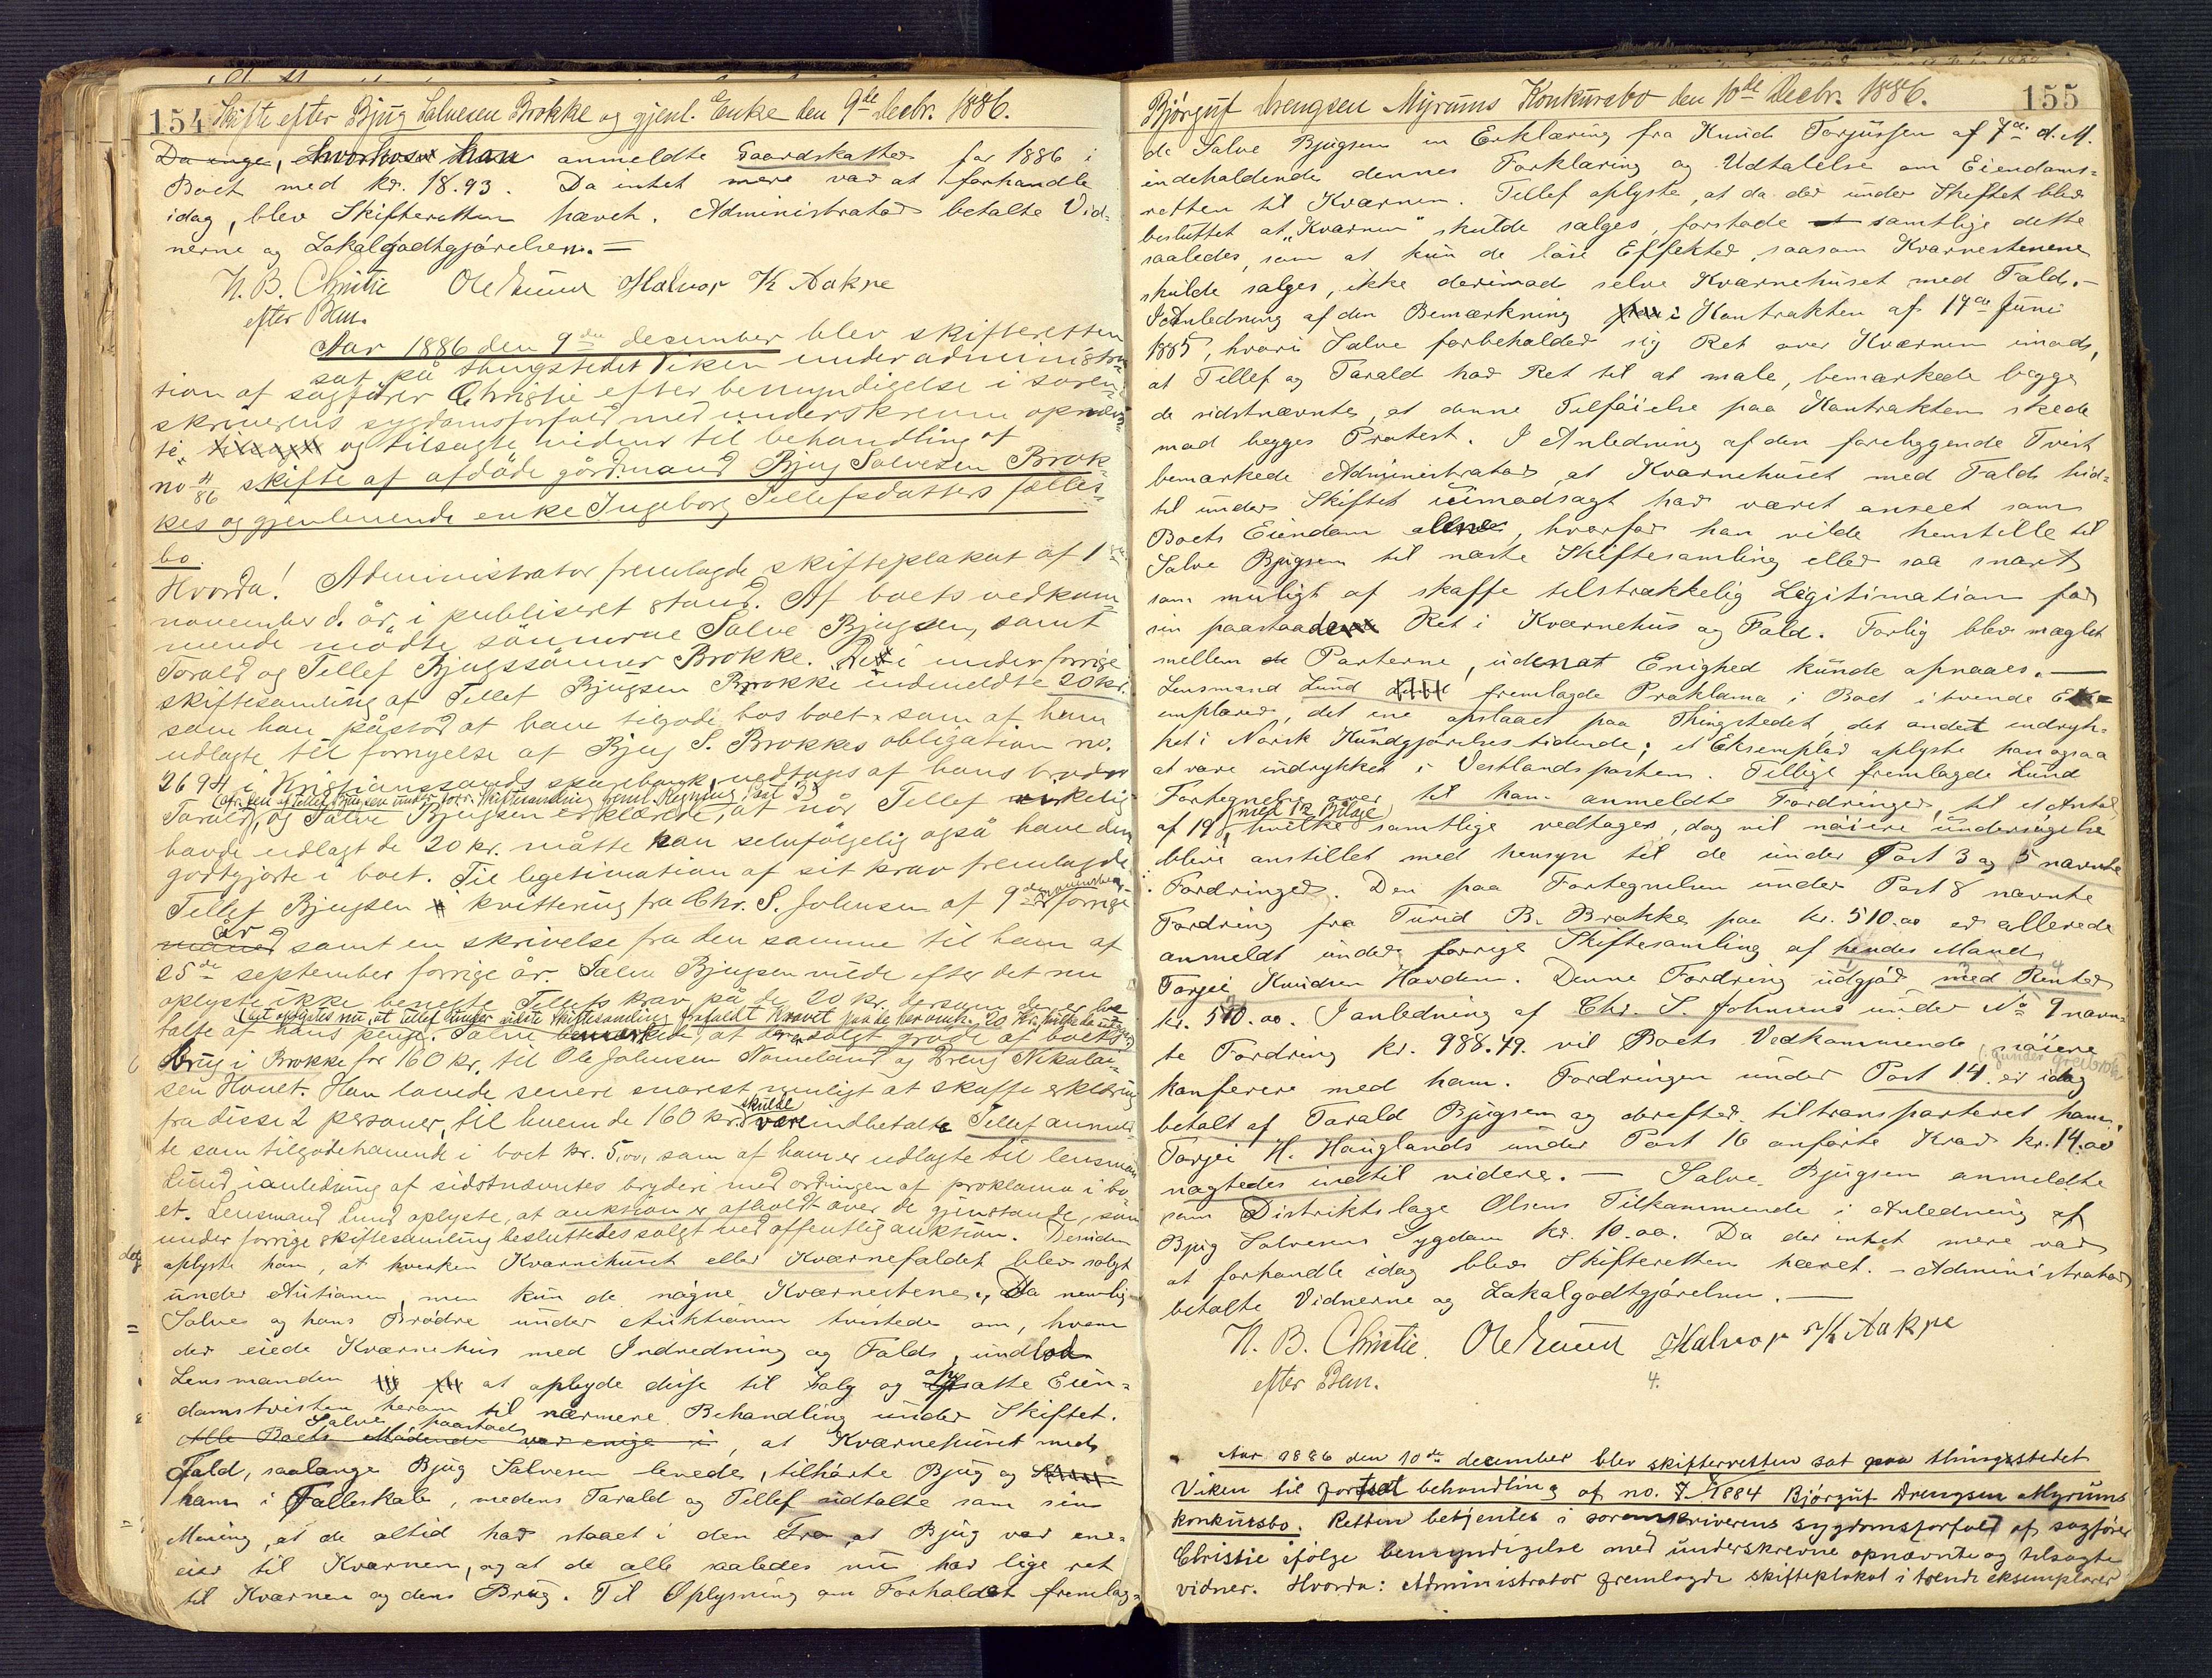 154 Skifte efter Bjug Salvesen Brokke og gjenl. Enke den 9de Decbr. 1886.
Da inge, hvorhos han anmeldte Gaardskatten for 1886 i
Boet med kr. 18.93. Da intet mere var at forhandle
idag, blev Skifteretten hævet. Administrator betalte Vid-
nerne og Lokalgodtgjörelsen. —
N. B. Christie Ole Lund Halvor K Aakre
efter Bem.
Aar 1886 den 9de december blev skifteretten
sat på thingstedet Viken under administra-
tion af sagförer Christie efter bemyndigelse i soren-
skriverens sygdomsforfald med underskrevne opnævn-
te og tilsagte vidner til behandling af
no 4/86 skifte af afdöde gårdmand Bjug Salvesen Brok-
kes og gjenlevende enke Ingeborg Tellefsdatters fælles-
bo.
Hvorda! Administrator fremlagde skifteplakat af 1ste
november d. år, i publiseret stand. Af boets vedkom-
mende mödte sönnerne Salve Bjugsen, samt
Torald og Tellef Bjugssönner Brokke. De i under forrige
skiftesamling af Tellef Bjugsen Brokke indmeldte 20 kr.
som han påstod at have tilgode hos boet, som af ham
udlagte til fornyelse af Bjug S. Brokkes obligation no.
2694 i Kristianssands sparebank, vedtages af hans broder
(cfr. den af Tellef Bjugsen under forr. Skiftesamling freml. Regning, Post 2)
Tarald, og Salve Bjugsen erklærede, at når Tellef virkelig
havde udlagt de 20 kr. måtte han selvfölgelig også have dem
godtgjorte i boet. Til legetimation af sit krav fremlagde
Tellef Bjugsen kvittering fra Chr. S. Johnsen af 9de november forrige
år
måned samt en skrivelse fra den samme til ham af
25de september forrige år. Salve Bjugsen vilde efter det nu
oplyste ikke benegte Tellefs krav på de 20 kr. dersom den er be
talte af hans penge. Salve bemærkede, at der er solgt gröde af boets
brug i Brokke for 160 kr. til Ole Johnsen Nomeland og Dreng Nikolai-
sen Homet. Han lovede senere snarest muligt at skaffe erklæring
fra disse 2 personer, til hvem de 160 kr. skulde være indbetalte Tellef anmeld-
te som tilgodehavende i boet kr. 5,00, som af ham er udlagte til lensmand
Lund i anledning af sidstnævntes bryderi med ordningen af proklama i bo-
et. Lensmand Lund oplyste, at auksion er afholdt over de gjenstande, som
under forrige skiftesamling besluttedes solgt ved offentlig auksion. Desuden
oplyste han, at hverken Kværnehuset eller Kværnefaldet blev solgt
under Auktionen, men kun de nögne Kværnestene, Da nemlig
Salve og hans Brödre under Auktionen tvistede om, hvem
der eiede Kværnehus med Indredning og Fald, undlod
Lensmanden at opbyde disse til Salg og opsatte Eien-
domstvisten herom til nærmere Behandling under Skiftet.
Salve paastaaed
Alle Boets Mödende var enige i, at Kværnehuset med
Fald, saalænge Bjug Salvesen levede, tilhörte Bjug og
ham i Fælleskab, medens Tarald og Tellef udtalte som sin
Mening, at de altid har staaet i den Tro, at Bjug var ene-
eier til Kværnen, og at de alle saaledes nu har lige ret
til Kværnen og dens Brug. Til Oplysning om Forholdet fremlag-
Bjørguf Drengsen Myrums Konkursbo den 10de Decbr. 1886. 155
de Salve Bjugsen en Erklæring fra Knud Torjussen af 7de d. M.
indeholdende dennes Forklaring og Udtalelse om Eiendoms-
retten til Kværnen. Tellef oplyste, at da der under Skiftet blev
besluttet at "Kværnen" skulde sælges, forstode samtlige dette
saaledes, som at kun de löse Effekter, saasom Kværnestenene
skulde sælges, ikke derimod selve Kværnehuset med Fald. —
I Anledning af den Bemærkning i Kontrakten af 17de Juni
1885, hvori Salve forbeholder sig Ret over Kværnen imod,
at Tellef og Tarald har Ret til at male, bemærkede begge
de sidstnævnte, at denne Tilföielse paa Kontrakten skede
mod begges Protest. I Anledning af den foreliggende Tvist
bemærkede Administrator, at Kværnehuset med Fald hid-
til under Skiftet uimodsagt har været anseet som
Boets Eiendom alene, hvorfor han vilde henstille til
Salve Bjugsen til næste Skiftesamling eller saa snart
som muligt at skaffe tilstrækkelig Legitimation for
sin paastaaede Ret i Kværnehus og Fald. Forlig blev mæglet
mellem Parterne, udenat Enighed kunde opnaaes. —
Lensmand Lund fremlagde Proklama i Boet i tvende Ex-
emplarer, det ene opslaaet paa Thingstedet, det andet indryk-
ket i Norsk Kundgjörelsestidende; et Eksemplar oplyste han ogsaa
at være indrykket i Vestlandsposten. Tillige fremlagde Lund
Fortegnelse over til ham anmeldte Fordringer, til et Antal
af 19 med 12 Bilage, hvilke samtlige vedtages, dog vil nöiere undersögelse
blive anstillet med hensyn til de under Post 3 og 5 nævnte
Fordringer. Den paa Fortegnelsen under Post 8 nævnte
Fordring fra Turid B. Brokke paa kr. 510.00 er allerede
anmeldt under forrige Skiftesamling af hendes Mand
Torgei Knudsen Havden. Denne Fordring udgjör med Renter
kr. 510.00. I anledning af Chr. S. Johnsens under No 9 nævn-
te Fordring kr. 988.49. vil Boets Vedkommende nöiere
konferere med ham. Fordringen under Post 14. er idag
betalt af Tarald Bjugsen og derefter tiltransporteret ham.
Torgei H. Hauglands under Post 16 anförte Krav kr. 14.00
nægtedes indtil videre. — Salve Bjugsen anmeldte
som Distriktslæge Olsens Tilkommende i Anledning af
Bjug Salvesens Sygdom kr. 10.00. Da der intet mere var
at forhandle idag blev Skifteretten hævet. — Administrator
betalte Vidnerne og Lokalgodtgjörelsen. —
N. B. Christie. Ole Lund Halvor K Aakre
efter Bem. 4.
Aar 1886 den 10de december blev skifterretten sat paa thingstedet
Viken til fortsat behandling af no. 7/1884 Bjørguf Drengsen Myrums
konkursbo. Retten betjentes i sorenskriverens sygdomsforfald af sagförer
Christie ifölge bemyndigelse med underskrevne opnævnte og tilsagte
vidner. Hvorda: Administrator fremlagde skifteplakat i tvende eksemplarer